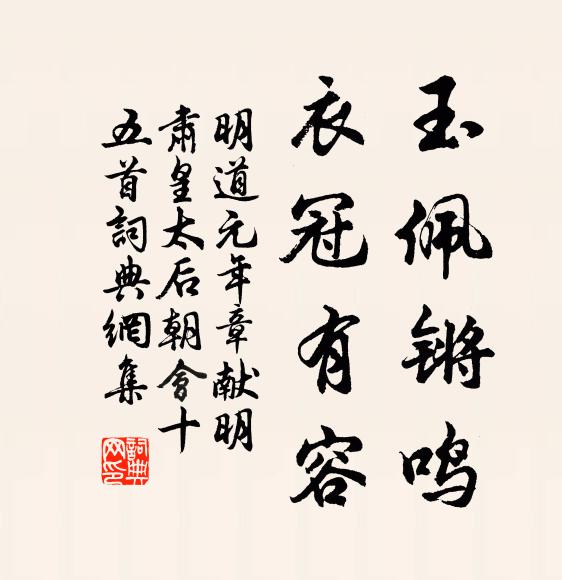 玉佩锵鸣
衣冠有容
明道元年章献明
肅皇太后朝會十
五首詞典網集
詞典网印